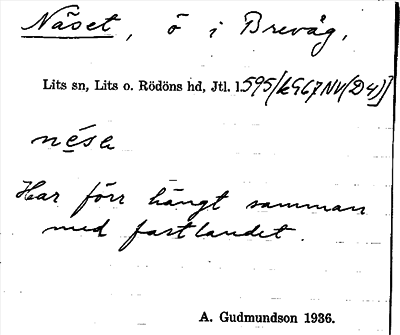 Näset, ö i Brevåg,
Lits sn, Lits o. Rödöns hd, Jtl. l.
nésa
Har förr hängt samman
med fastlandet.
A. Gudmundson 1936.